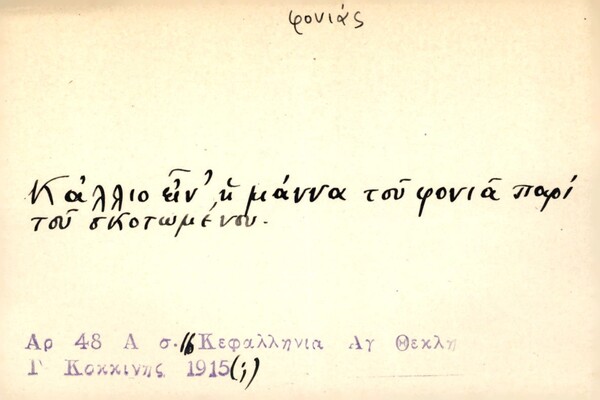 φονιάς
Κάλλιο εἶν' ἡ μάννα τοῦ φονιᾶ παρὶ
τοῦ σκοτωμένου.
Αρ 48 Α σ. 16 Κεφαλληνια Αγ Θεκλη
Γ Κοκκινης 1915 (;)